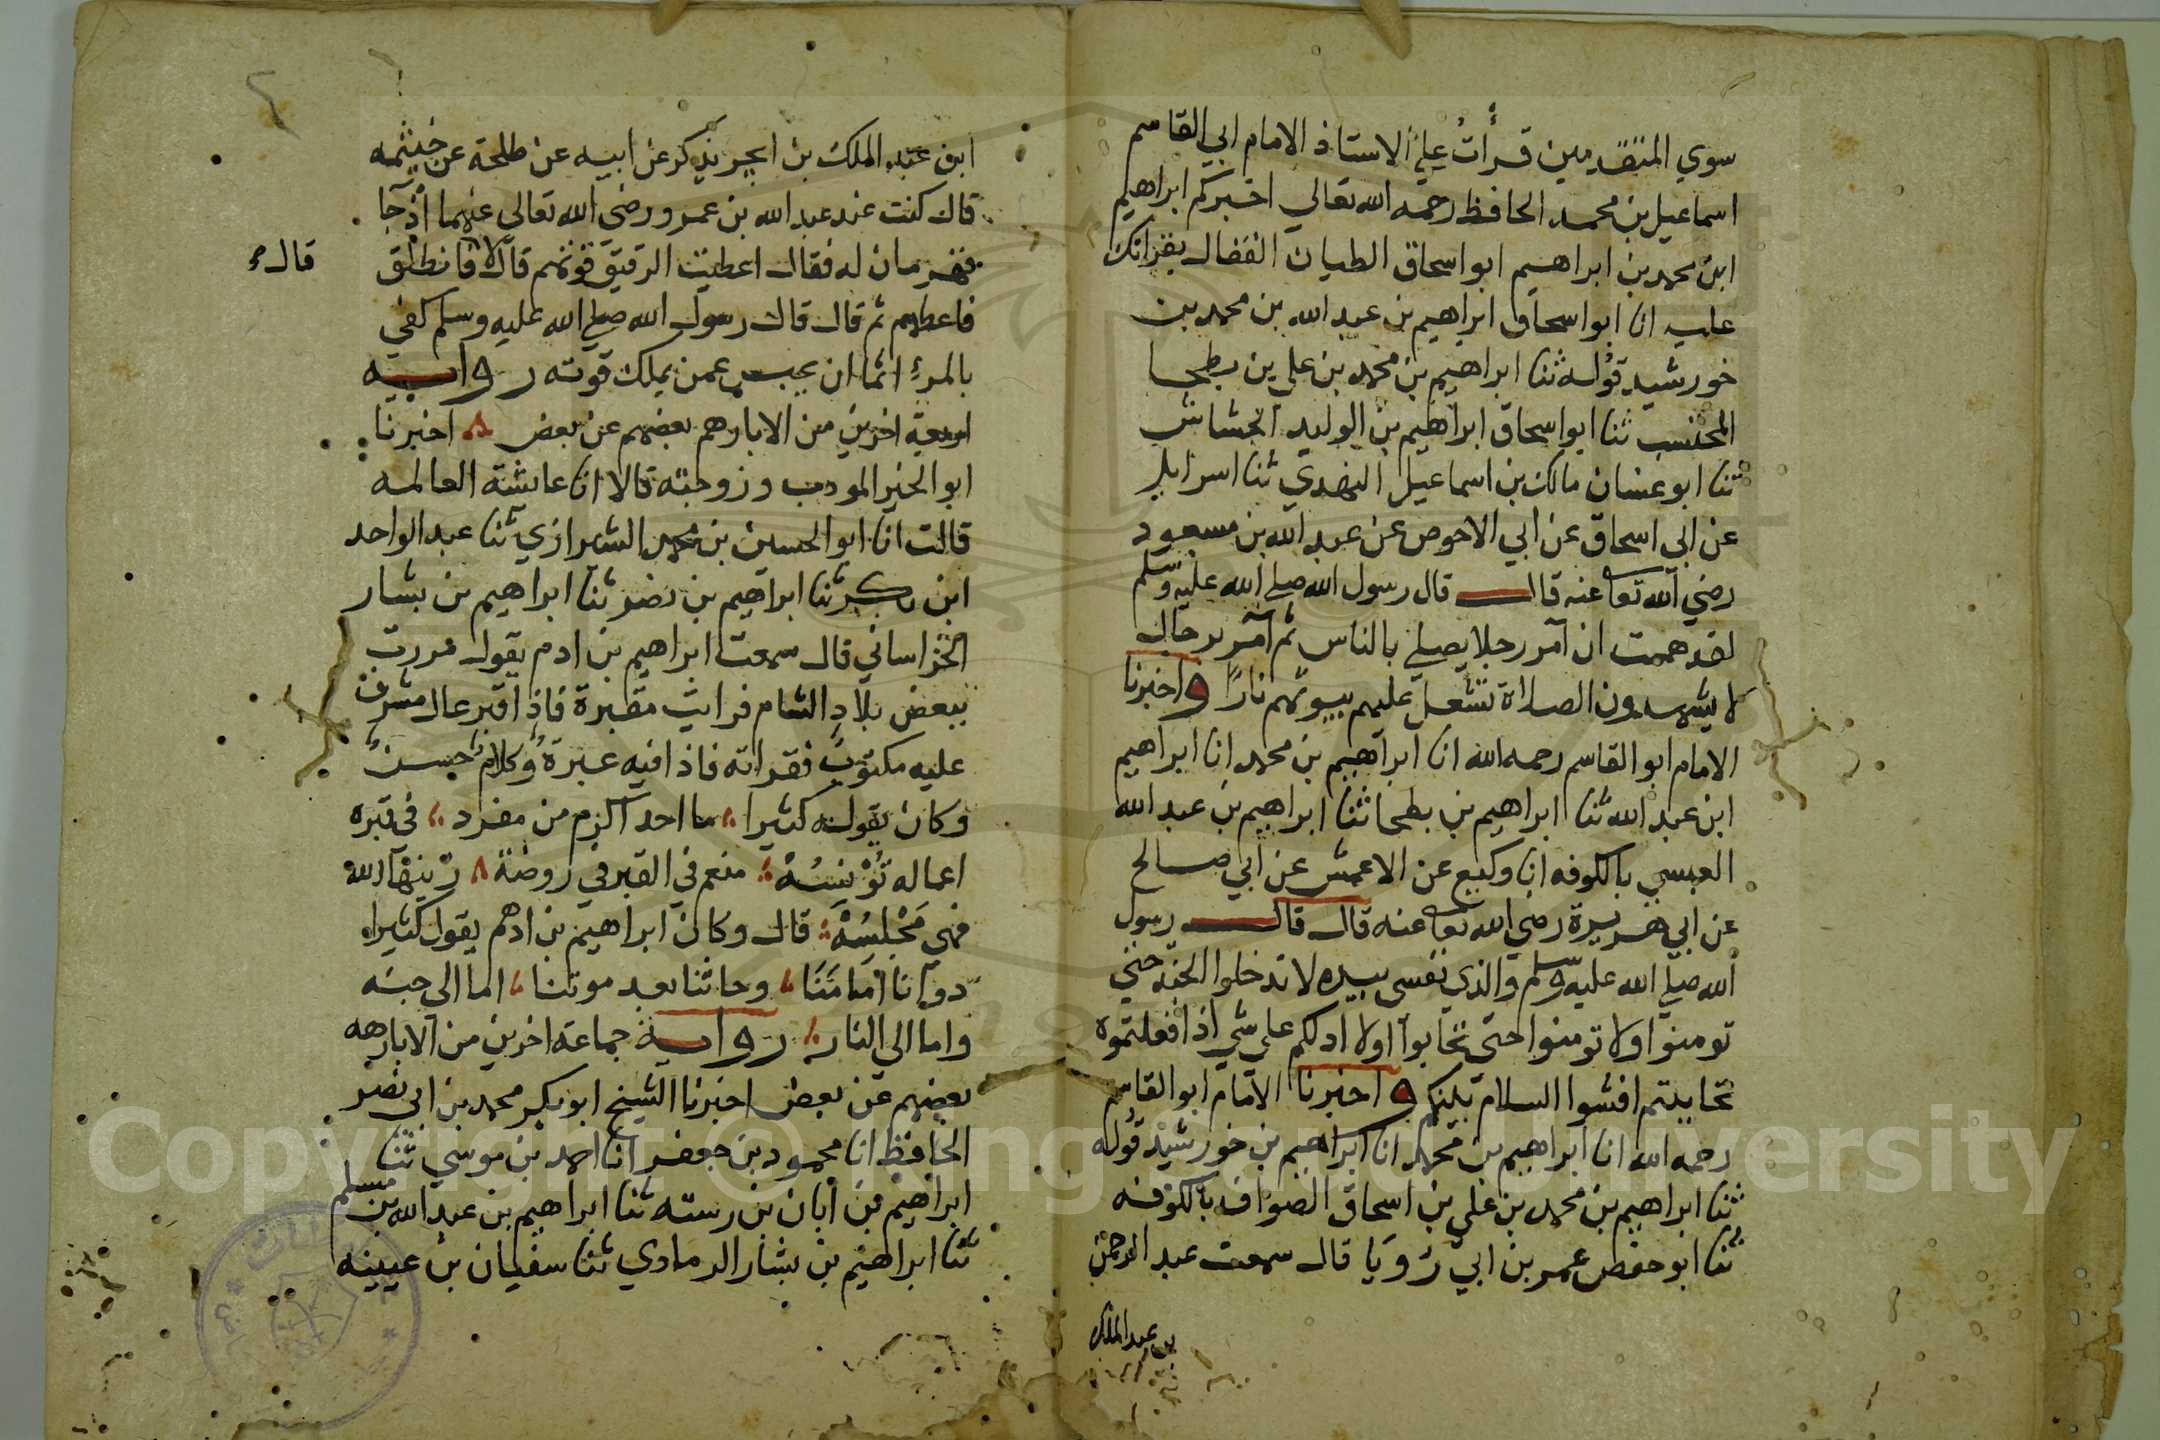 سوي المتقدمين قرأت علي الاستاذ الامام ابي القاسم
اسماعيل بن محمد الحافظ رحمه الله تعالي اخبركم ابراهيم
ابن محمد بن ابراهيم ابو اسحاق الطيان القفال بقراتك
عليه انا ابو اسحاق ابراهيم بن عبد الله بن محمد بن
خورشيد قوله ثنا ابراهيم بن محمد بن علي بن بطحا
المحتسب ثنا ابو اسحاق ابراهيم بن الوليد الجشاش
ثنا ابو غسان مالك بن اسماعيل النهدي ثنا اسرايل
عن ابي اسحاق عن ابي الاحوص عن عبد الله بن مسعود
رضي الله تعا عنه قال قال رسول الله صلي الله عليه وسلم
لقد هممت ان آمر رجلا يصلي بالناس ثم آمر برجال
لا يشهدون الصلاة تشعل عليهم بيوتهم نارًا واخبرنا
الامام ابو القاسم رحمه الله انا ابراهيم بن محمد انا ابراهيم
ابن عبد الله ثنا ابراهيم بن بطحا ثنا ابراهيم بن عبد الله
العبسي بالكوفه انا وكيع عن الاعمش عن ابي صالح
عن ابي هريرة رضي الله تعا عنه قال قال رسول
الله صلي الله عليه وسلم والذي نفسي بيده لا تدخلوا الجنه حتي
تومنوا ولا تومنوا حتي تحابوا اولا ادلكم علي شي اذا فعلتموه
تحاببتم افشوا السلام بينكم واخبرنا الامام ابو القاسم
رحمه الله انا ابراهيم بن محمد انا ابراهيم بن خورشيد قوله
ثنا ابراهيم بن محمد بن علي بن اسحاق الصواف بالكوفه
ثنا ابو حفص عمر بن ابي رويا قال سمعت عبد الرحمن
بن عبد الملك
ابن عبد الملك بن ابجر يذكر عن ابيه عن طلحة عن خيثمه
قال كنت عند عبد الله بن عمرو رضي الله تعالي عنهما اذ جا
قهرمان له فقال اعطيت الرقيق قوتهم قال لا فانطلق
قال
فاعطهم ثم قال قال رسول الله صلي الله عليه وسلم كفي
بالمرء اثما ان يحبس عمن يملك قوته رواية
اربعة اخرين من الاباره‍م بعضهم عن بعض اخبرنا
ابو الخير المودب وزوجته قالا انا عايشة العالمه
قالت انا ابو الحسين بن محمد الشيرازي ثنا عبد الواحد
ابن بكر ثنا ابراهيم بن نصر ثنا ابراهيم بن بشار
الخراساني قال سمعت ابراهيم بن ادم يقول مررت
ببعض بلاد الشام فرايت مقبرة فاذا قبر عال مشرف
عليه مكتوب فقراته فاذا فيه عبرة وكلام حسن
وكان يقوله كثيرا ما احد اكرم من مفرد في قبره
اعماله تؤنسه منعم في القبر في روضة زينها الله
فهي مجلسه قال وكان ابراهيم بن ادهم يقول كثيرا
دوانا امامنا وحاثنا بعد موتنا اما الي جنه
واما الي النار رواية جماعة اخرين من الابارهه
بعضهم عن بعض اخبرنا الشيخ ابو بكر محمد بن ابي نصر
الحافظ انا محمود بن جعفر انا احمد بن موسي ثنا
ابراهيم بن ابان بن رسته ثنا ابراهيم بن عبد الله بن مسلم
ثنا ابراهيم بن بشار الرمادي ثنا سفيان بن عيينه
Copyright © King Saud University